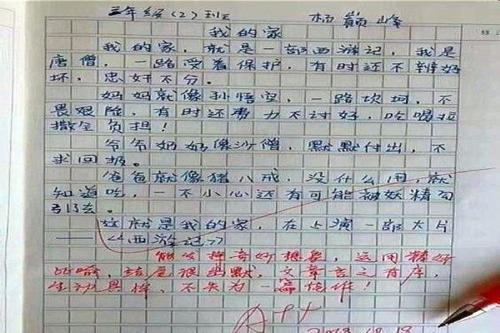 三年级(2)班 杨巅峰
我的家
我的家,就是一部西游记,我是
唐僧,一路受着保护,有时还不辨好
坏,忠奸不分。
妈妈就像孙悟空,一路坎坷,不
畏艰险,有时还费力不讨好,吃喝拉
撒全负担!
爷爷奶奶像沙僧,默默付出,不
求回报。
爸爸就像猪八戒,没什么用,就
知道吃,一不小心还有可能被妖精勾
引了去。
这就是我的家,在上演一部大片
——《西游记》
能发挥奇妙想象,运用精妙
比喻,语言很幽默,文章言之有序,
生动具体,不失为一篇佳作!
A++